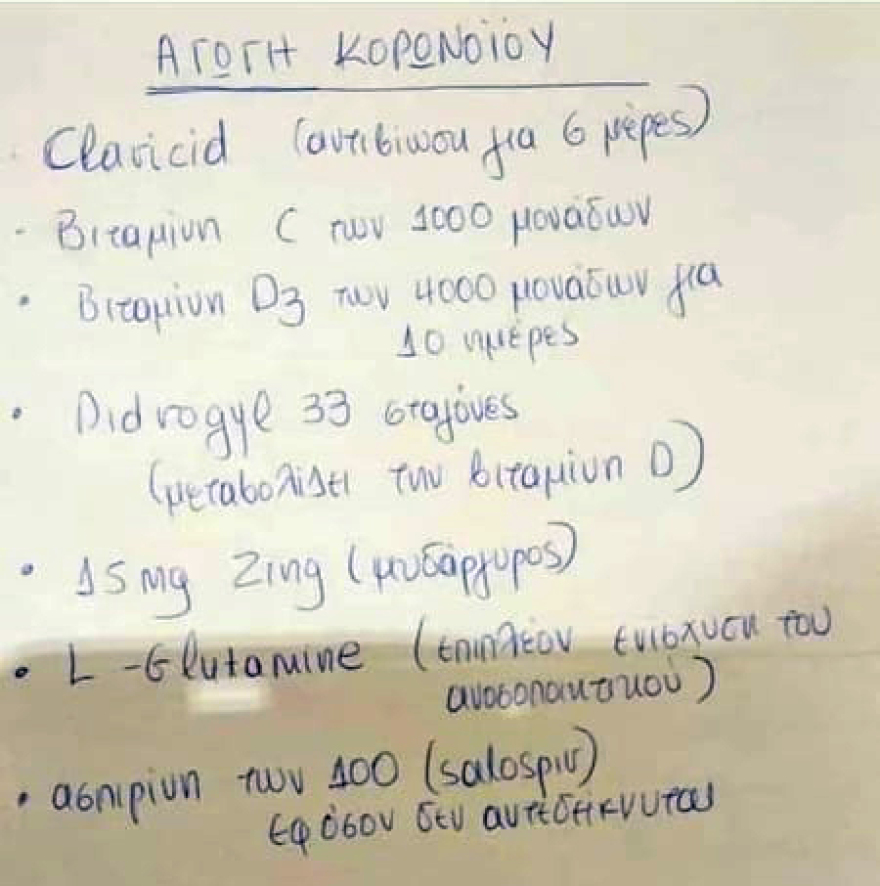 ΑΓΩΓΗ ΚΟΡΩΝΟΪΟΥ
Claricid (αντιβίωση για 6 μέρες)
- Βιταμίνη C των 1000 μονάδων
• Βιταμίνη D3 των 4000 μονάδων για
10 ημέρες
• Didrogyl 33 σταγόνες
(μεταβολίζει την βιταμίνη D)
• 15mg Zing (μυδάργυρος)
• L-Glutamine (επιπλέον ενίσχυση του
ανοσοποιητικού)
• ασπιρίνη των 100 (salospιν)
εφ όσον δεν αντεδείκνυται